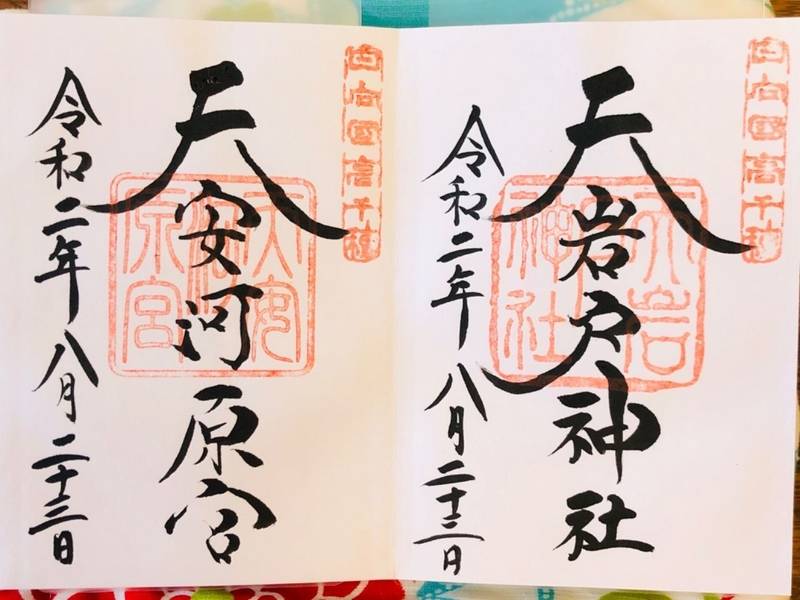 日向國高千穂
天岩戸神社
天岩
神社
令和二年 八月二十三日
日向國高千穂
天安河原宮
天安
原宮
令和二年 八月 二十三日